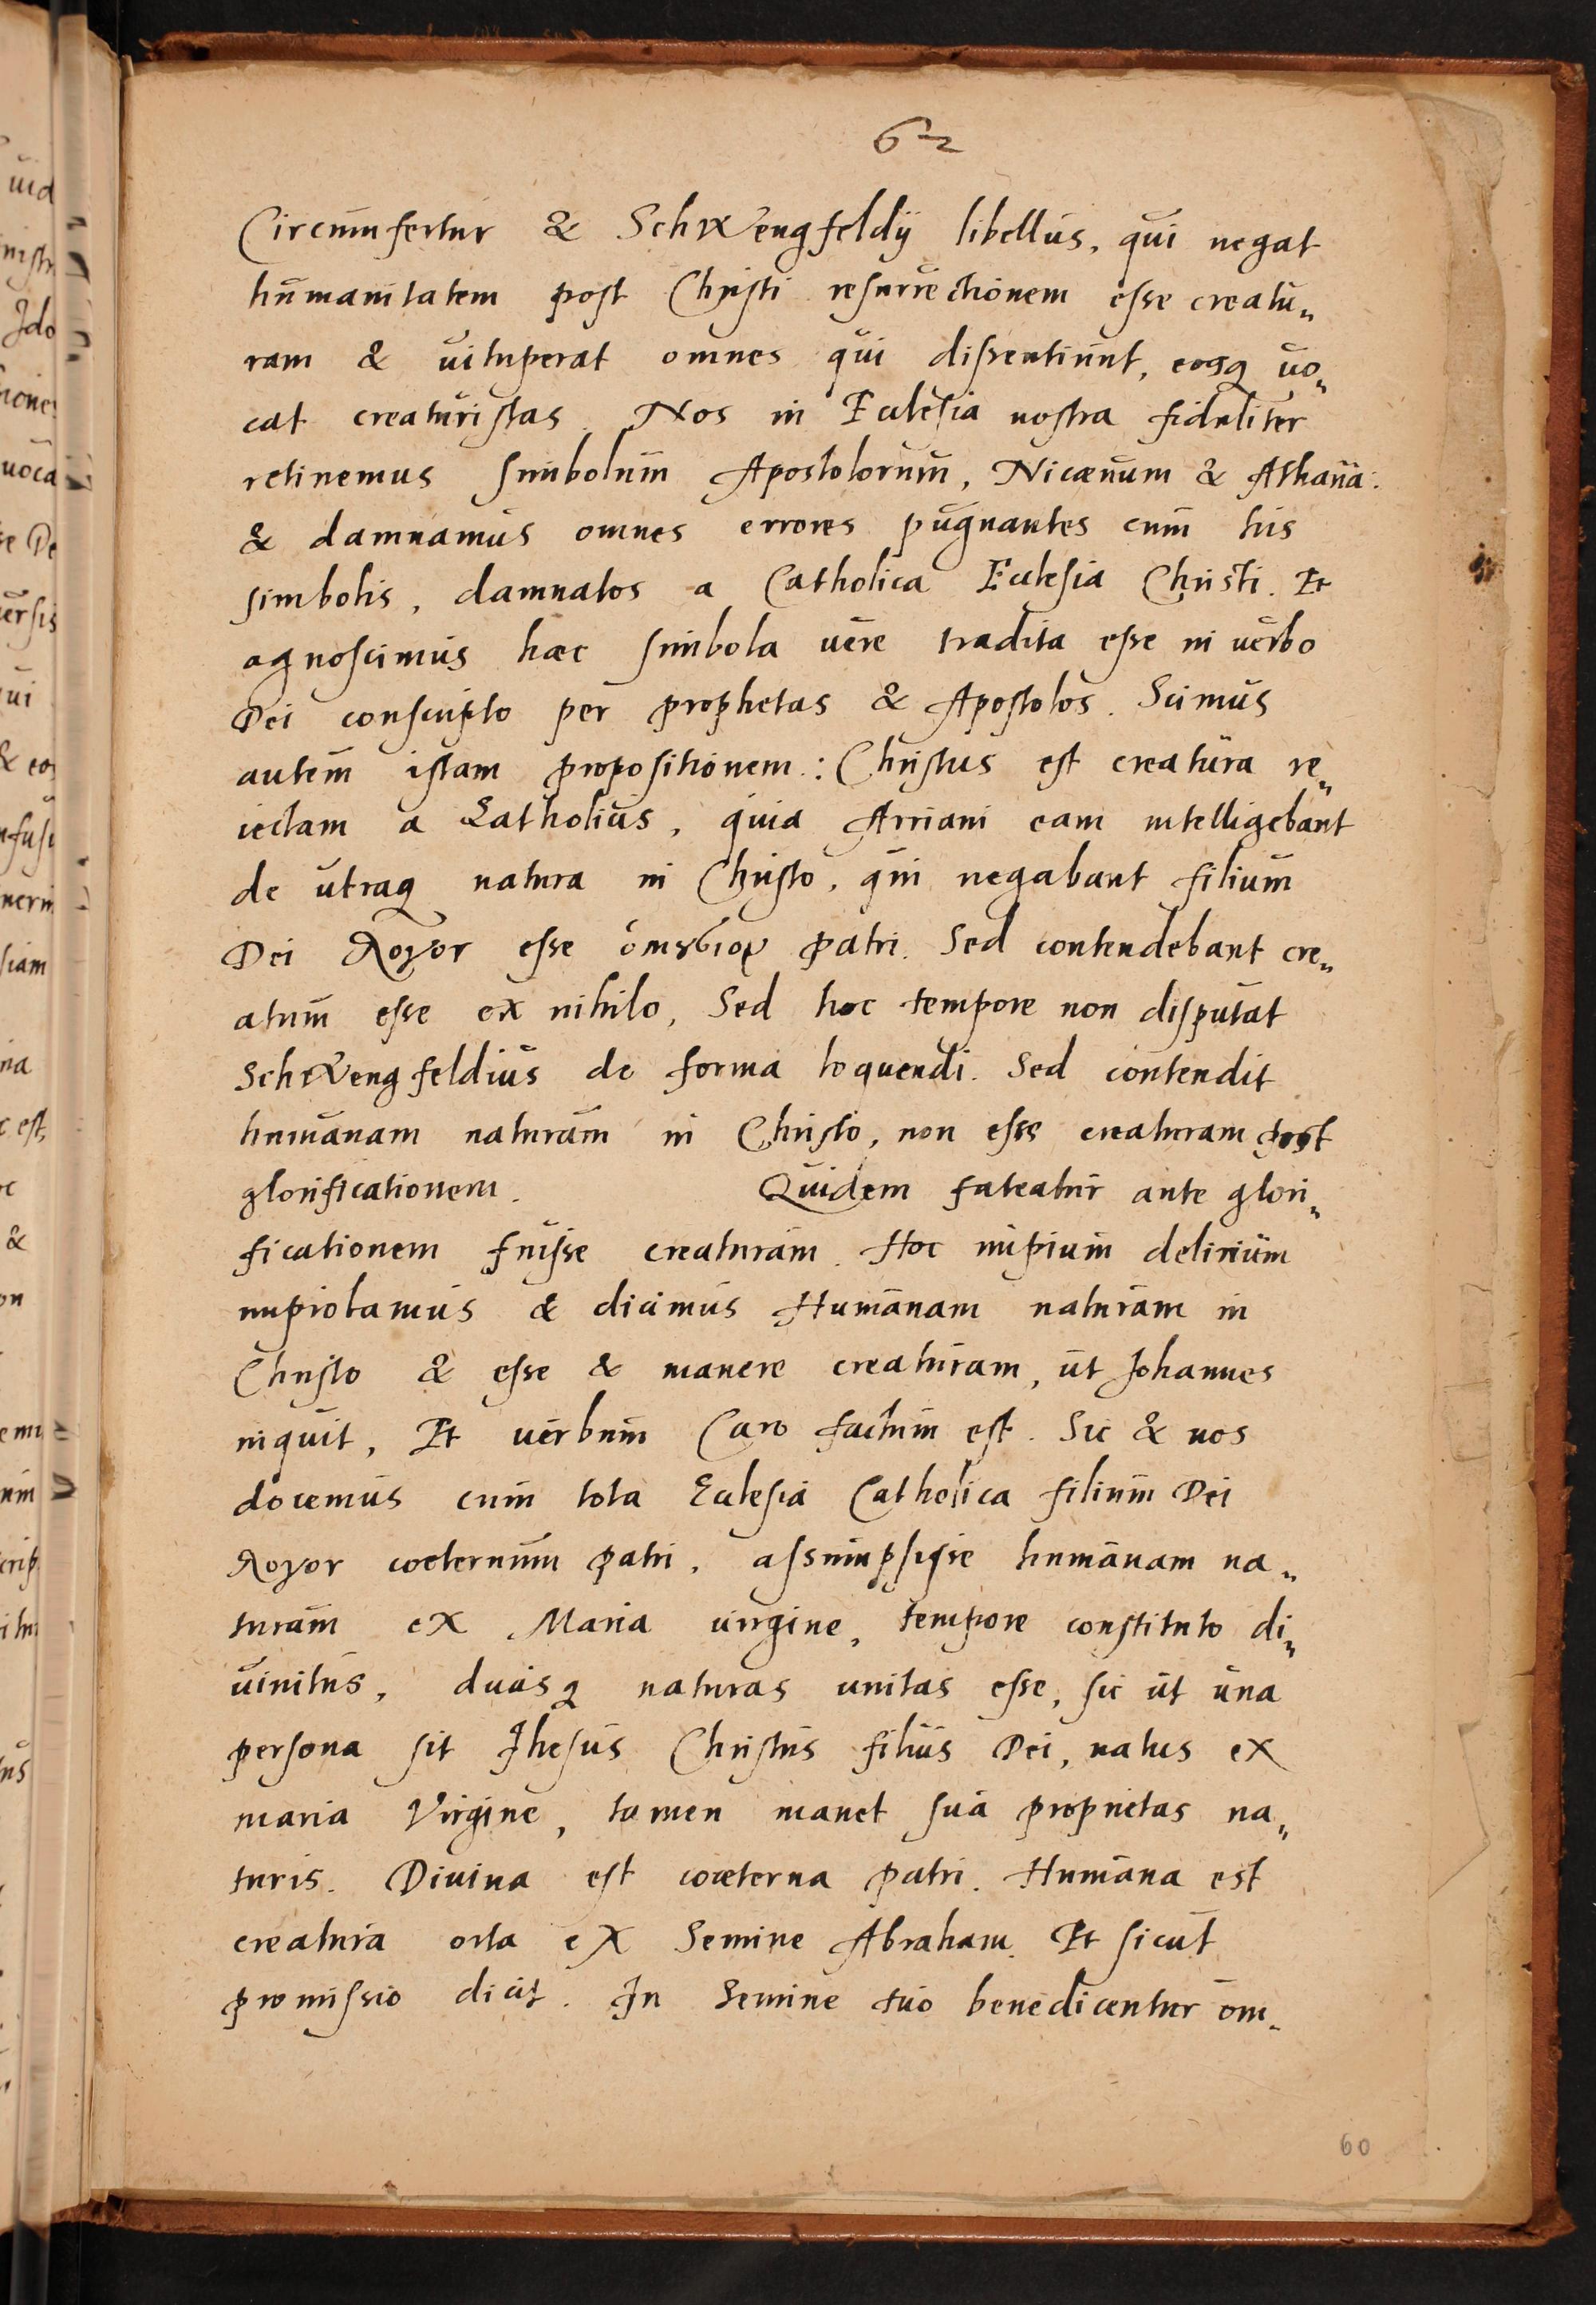 62
Circumfertur & Schwengfeldij libellus, qui negat
humanitatem post Christi resurrectionem esse creatu„
ram & uituperat omnes qui dissentiunt, eosq uo„
cat creaturistas. Nos in Eclesia nostra fideliter
retinemus simbolum Apostolorum, Nicænum & Athana:
& damnamus omnes errores pugnantes cum his
simbolis, damnatos a Catholica Eclesia Christi. Et
agnoscimus hæc simbola uere tradita esse in uerbo
Dei conscripto per prophetas & Apostolos. Scimus
autem istam propositionem: Christus est creatura re„
iectam a Catholicis, quia Arriani eam intelligebant
de utraq natura in Christo, qui negabant filium
Dei λογον esse ὁμȣσιον patri. Sed contendebant cre„
atum esse ex nihilo, Sed hoc tempore non disputat
Schwengfeldius de forma loquendi. Sed contendit
humanam naturam in Christo, non esse creaturam post
glorificationem. Quidem fateatur ante glori„
ficationem fuisse creaturam. Hoc impium delirium
improbamus & dicimus Humanam naturam in
Christo & esse & manere creaturam, ut Johannes
inquit, Et uerbum Caro factum est. Sic & nos
docemus cum tota Eclesia Catholica filium Dei
λογον coeternum patri, assumpsisse humanam na„
turam ex Maria uirgine, tempore constituto di„
uinitus, duasq naturas unitas esse, sic ut una
persona sit Jhesus Christus filius Dei, natus ex
maria Virgine, tamen manet sua proprietas na„
turis. Diuina est coæterna patri. Humana est
creatura orta ex Semine Abraham. Et sicut
promissio dicit. In Semine tuo benedicentur om„
60